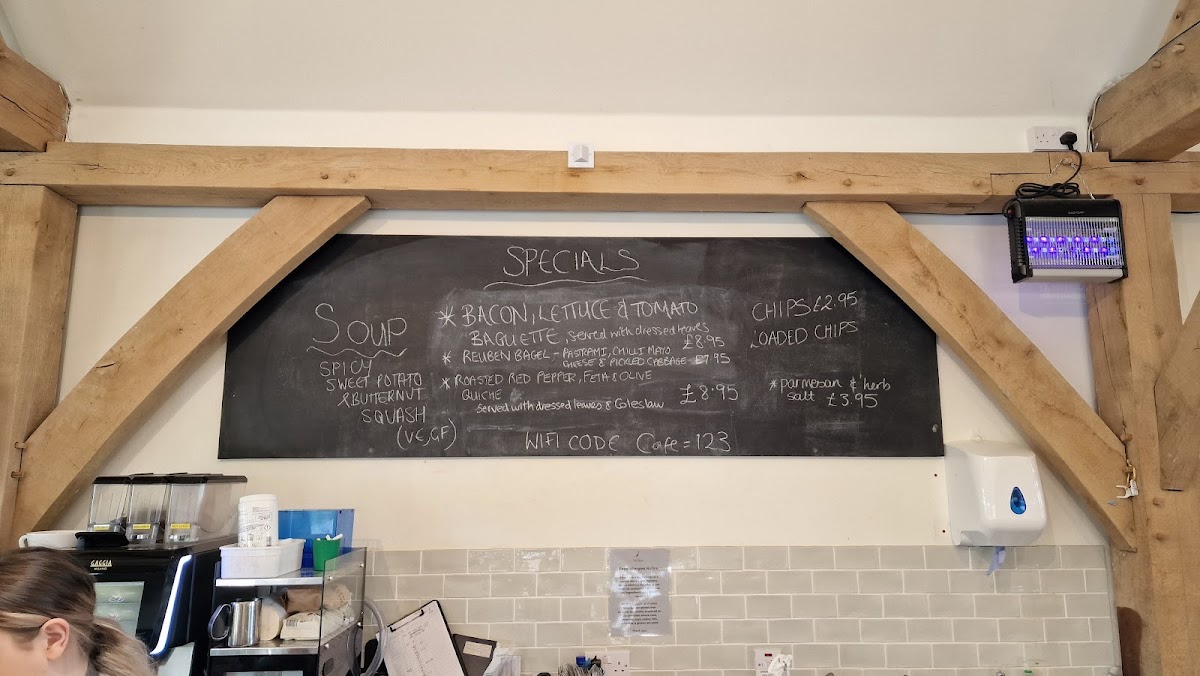 SPECIALS
SOUP
SPICY
SWEET POTATO
& BUTTERNUT
SQUASH
(VE, GF)
* BACON, LETTUCE & TOMATO
BAGUETTE, served with dressed leaves
£8.95
* REUBEN BAGEL - PASTRAMI, CHILLI MAYO
CHEESE & PICKLED CABBAGE £7.95
* ROASTED RED PEPPER, FETA & OLIVE
QUICHE £8.95
Served with dressed leaves & Coleslaw
WIFI CODE Cafe = 123
CHIPS £2.95
LOADED CHIPS
* parmesan & herb
salt £3.95
GAGGIA